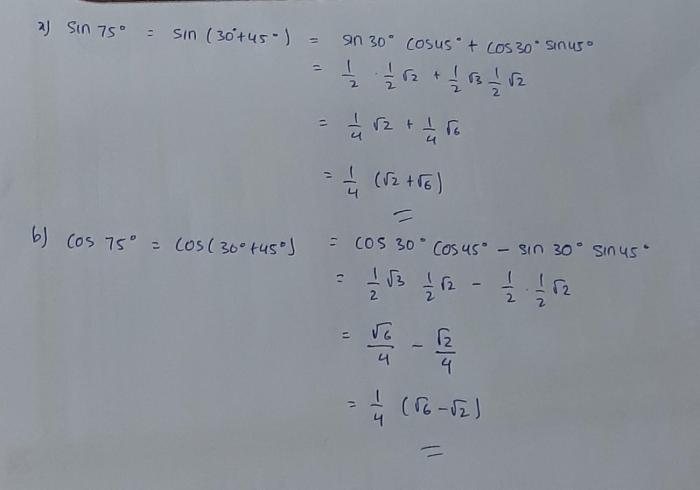 a) sin 75° = sin (30°+45°) = sin 30° cos45° + cos30° sin45°
= 1/2 . 1/2 √2 + 1/2 √3 1/2 √2
= 1/4 √2 + 1/4 √6
= 1/4 (√2+√6)
b) cos 75° = cos(30°+45°) = cos 30° cos45° - sin 30° sin45°
= 1/2 √3 1/2 √2 - 1/2 . 1/2 √2
= √6/4 - √2/4
= 1/4 (√6-√2)